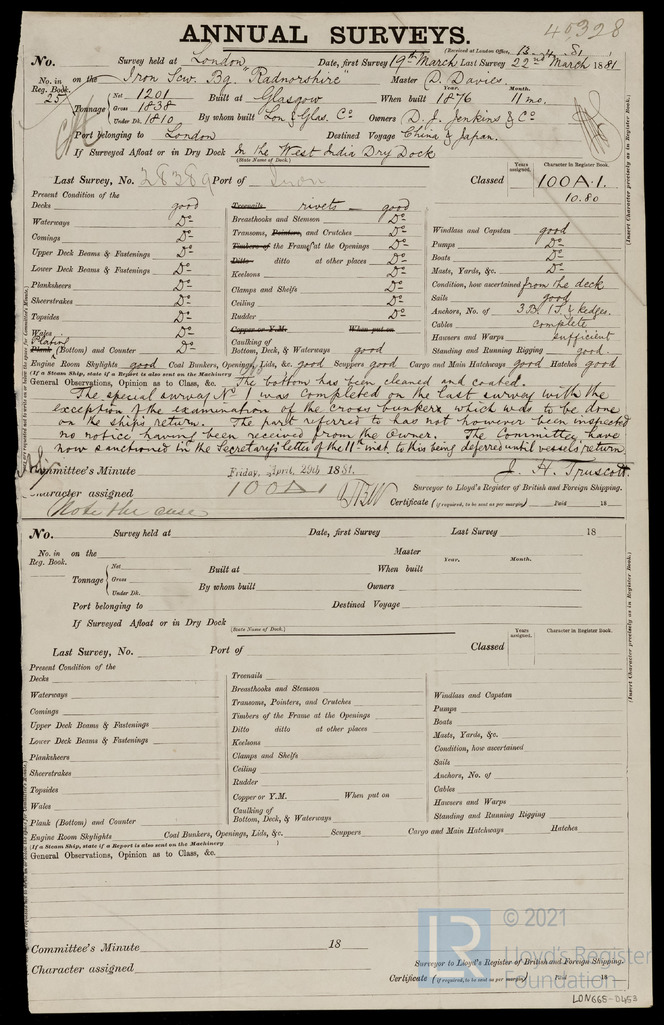 ANNUAL SURVEYS.
40328
(Received at London Office,
No. Survey held at London Date, first Survey 19th March Last Survey 22nd March 1881
No. in Reg. Book. 25 on the Iron Scw. Bq. "Radnorshire" Master D. Davies
Tonnage Net 1201 Gross 1838 Under Dk. 1810 Built at Glasgow When built Year. 1876 Month. 11 mo.
By whom built Lon & Glas. Co Owners D. J. Jenkins & Co
Port belonging to London Destined Voyage China & Japan.
If Surveyed Afloat or in Dry Dock In the West India Dry Dock
(State Name of Dock.)
(Insert Character precisely as in Register Book.)
Last Survey, No. 28389 Port of Iron Classed Years assigned. Character in Register Book. 100A.1.
10.80
Present Condition of the
Decks good
Waterways Do
Comings Do
Upper Deck Beams & Fastenings Do
Lower Deck Beams & Fastenings Do
Planksheers Do
Sheerstrakes Do
Topsides Do
Wales Do
Plating
Plank (Bottom) and Counter Do
Treenails rivets good
Breasthooks and Stemson Do
Transoms, Pointers, and Crutches Do
Timbers of the Frame at the Openings Do
Ditto ditto at other places Do
Keelsons Do
Clamps and Shelfs Do
Ceiling Do
Rudder Do
Copper or Y.M. When put on
Caulking of
Bottom, Deck, & Waterways good
Windlass and Capstan good
Pumps Do
Boats Do
Masts, Yards, &c. Do
Condition, how ascertained from the deck
Sails good
Anchors, No. of 3 B. 1 S. & kedges.
Cables complete
Hawsers and Warps sufficient
Standing and Running Rigging good.
Engine Room Skylights good Coal Bunkers, Openings, Lids, &c. good Scuppers good Cargo and Main Hatchways good Hatches good
(If a Steam Ship, state if a Report is also sent on the Machinery
General Observations, Opinion as to Class, &c. The bottom has been cleaned and coated.
The special survey No 1 was completed on the last survey with the
exception of the examination of the cross bunkers which was to be done
on the ship's return. The part referred to has not however been inspected
no notice having been received from the Owner. The Committee have
now sanctioned in the Secretary's letter of the 11th inst. to this being deferred until vessels return
Committee's Minute Friday, April, 29th 1881. J. H. Truscott.
Character assigned 100A1 Surveyor to Lloyd's Register of British and Foreign Shipping.
Note the case Certificate (if required, to be sent as per margin) Paid 18
No. Survey held at Date, first Survey Last Survey 18
No. in Reg. Book. on the Master
Tonnage Net Gross Under Dk. Built at When built Year. Month.
By whom built Owners
Port belonging to Destined Voyage
If Surveyed Afloat or in Dry Dock
(State Name of Dock.)
(Insert Character precisely as in Register Book.)
Last Survey, No. Port of Classed Years assigned. Character in Register Book.
Present Condition of the
Decks
Waterways
Comings
Upper Deck Beams & Fastenings
Lower Deck Beams & Fastenings
Planksheers
Sheerstrakes
Topsides
Wales
Plank (Bottom) and Counter
Treenails
Breasthooks and Stemson
Transoms, Pointers, and Crutches
Timbers of the Frame at the Openings
Ditto ditto at other places
Keelsons
Clamps and Shelfs
Ceiling
Rudder
Copper or Y.M. When put on
Caulking of
Bottom, Deck, & Waterways
Windlass and Capstan
Pumps
Boats
Masts, Yards, &c.
Condition, how ascertained
Sails
Anchors, No. of
Cables
Hawsers and Warps
Standing and Running Rigging
Engine Room Skylights Coal Bunkers, Openings, Lids, &c. Scuppers Cargo and Main Hatchways Hatches
(If a Steam Ship, state if a Report is also sent on the Machinery )
General Observations, Opinion as to Class, &c.
Committee's Minute 18
Character assigned
Surveyor to Lloyd's Register of British and Foreign Shipping.
Certificate (if required, to be sent as per margin) Paid 18
LR © 2021
Lloyd's Register
Foundation
LON665-0453